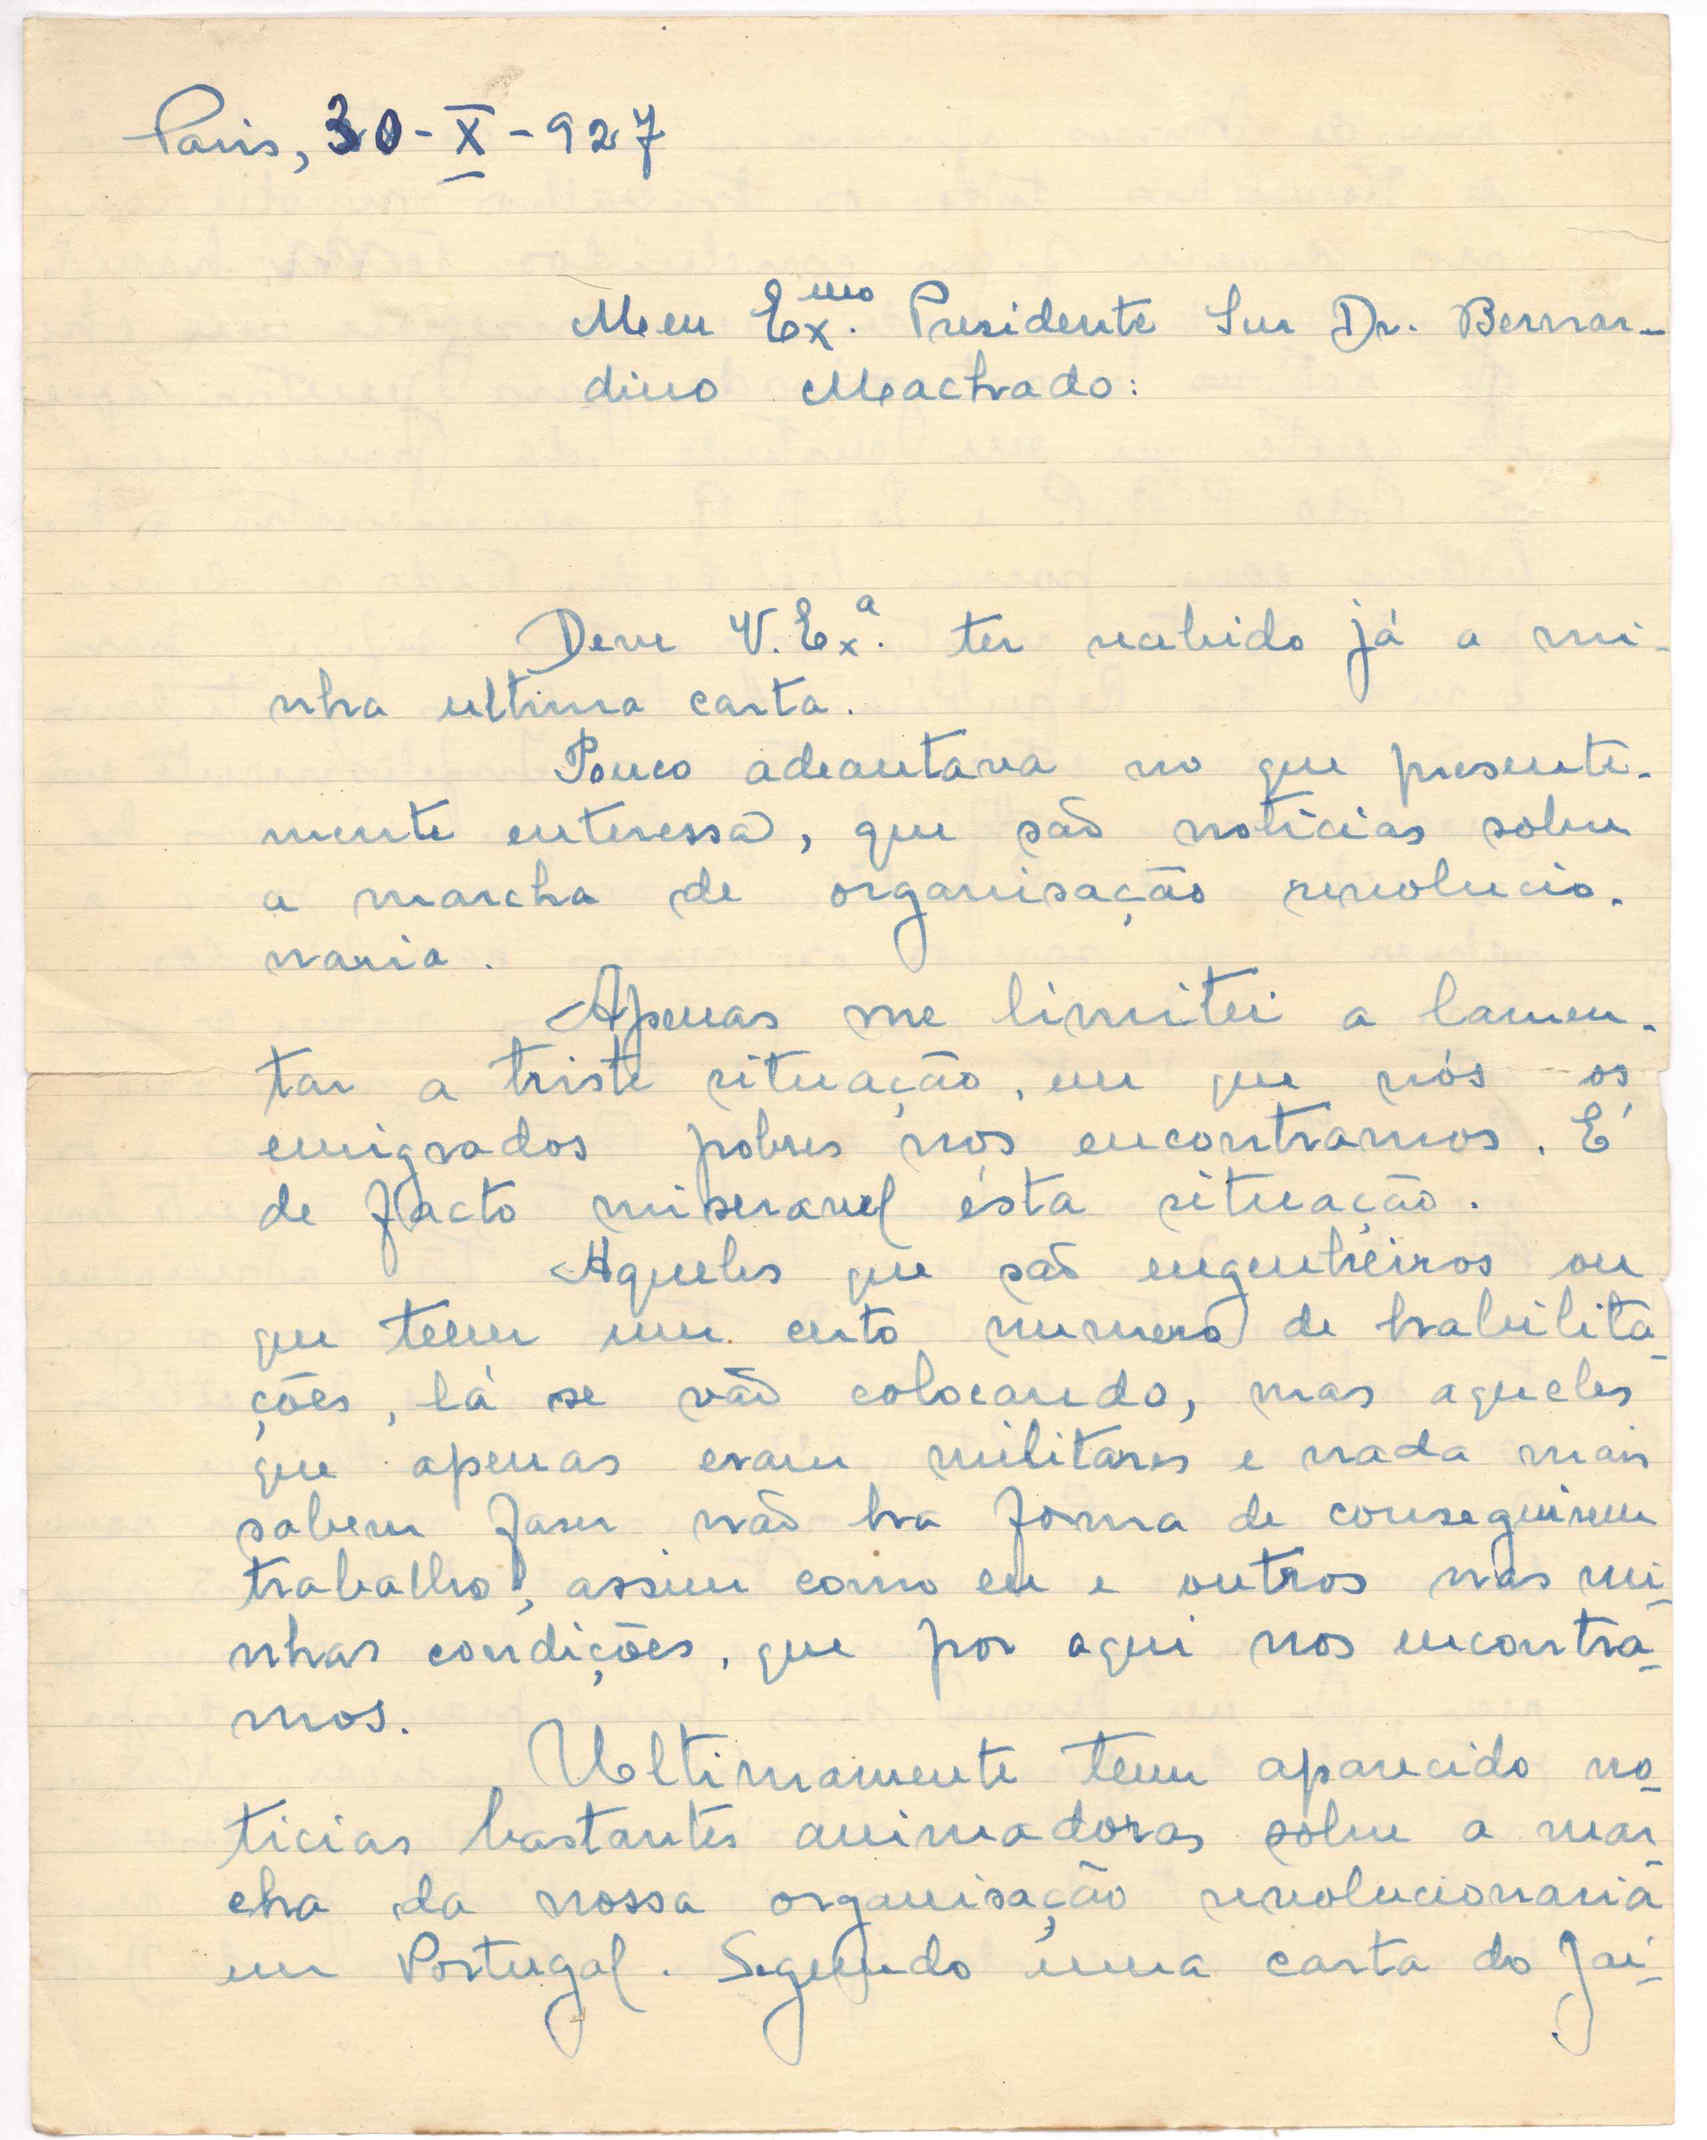 Paris, 30-X-927
Meu Ex.mo Presidente Snr Dr. Bernar-
dino Machado:
Deve V. Ex.a ter recebido já a mi-
nha ultima carta.
Pouco adeantava no que presente-
mente enteressa, que são noticias sobre
a marcha de organisação revolucio-
naria.
Apenas me limitei a lamen-
tar a triste situação, em que nós os
emigrados pobres nos encontramos. É
de facto miseravel ésta situação.
Aqueles que são engenheiros ou
que teem um certo numero de habilita-
ções, lá se vão colocando, mas aqueles
que apenas eram militares e nada mais
sabem faser não ha forma de conseguirem
trabalho, assim como eu e outros nas mi-
nhas condições, que por aqui nos encontra-
mos.
Ultimamente tem aparecido no-
ticias bastantes animadoras sobre a mar-
cha da nossa organisação revolucionaria
em Portugal. Segundo uma carta do Jai-